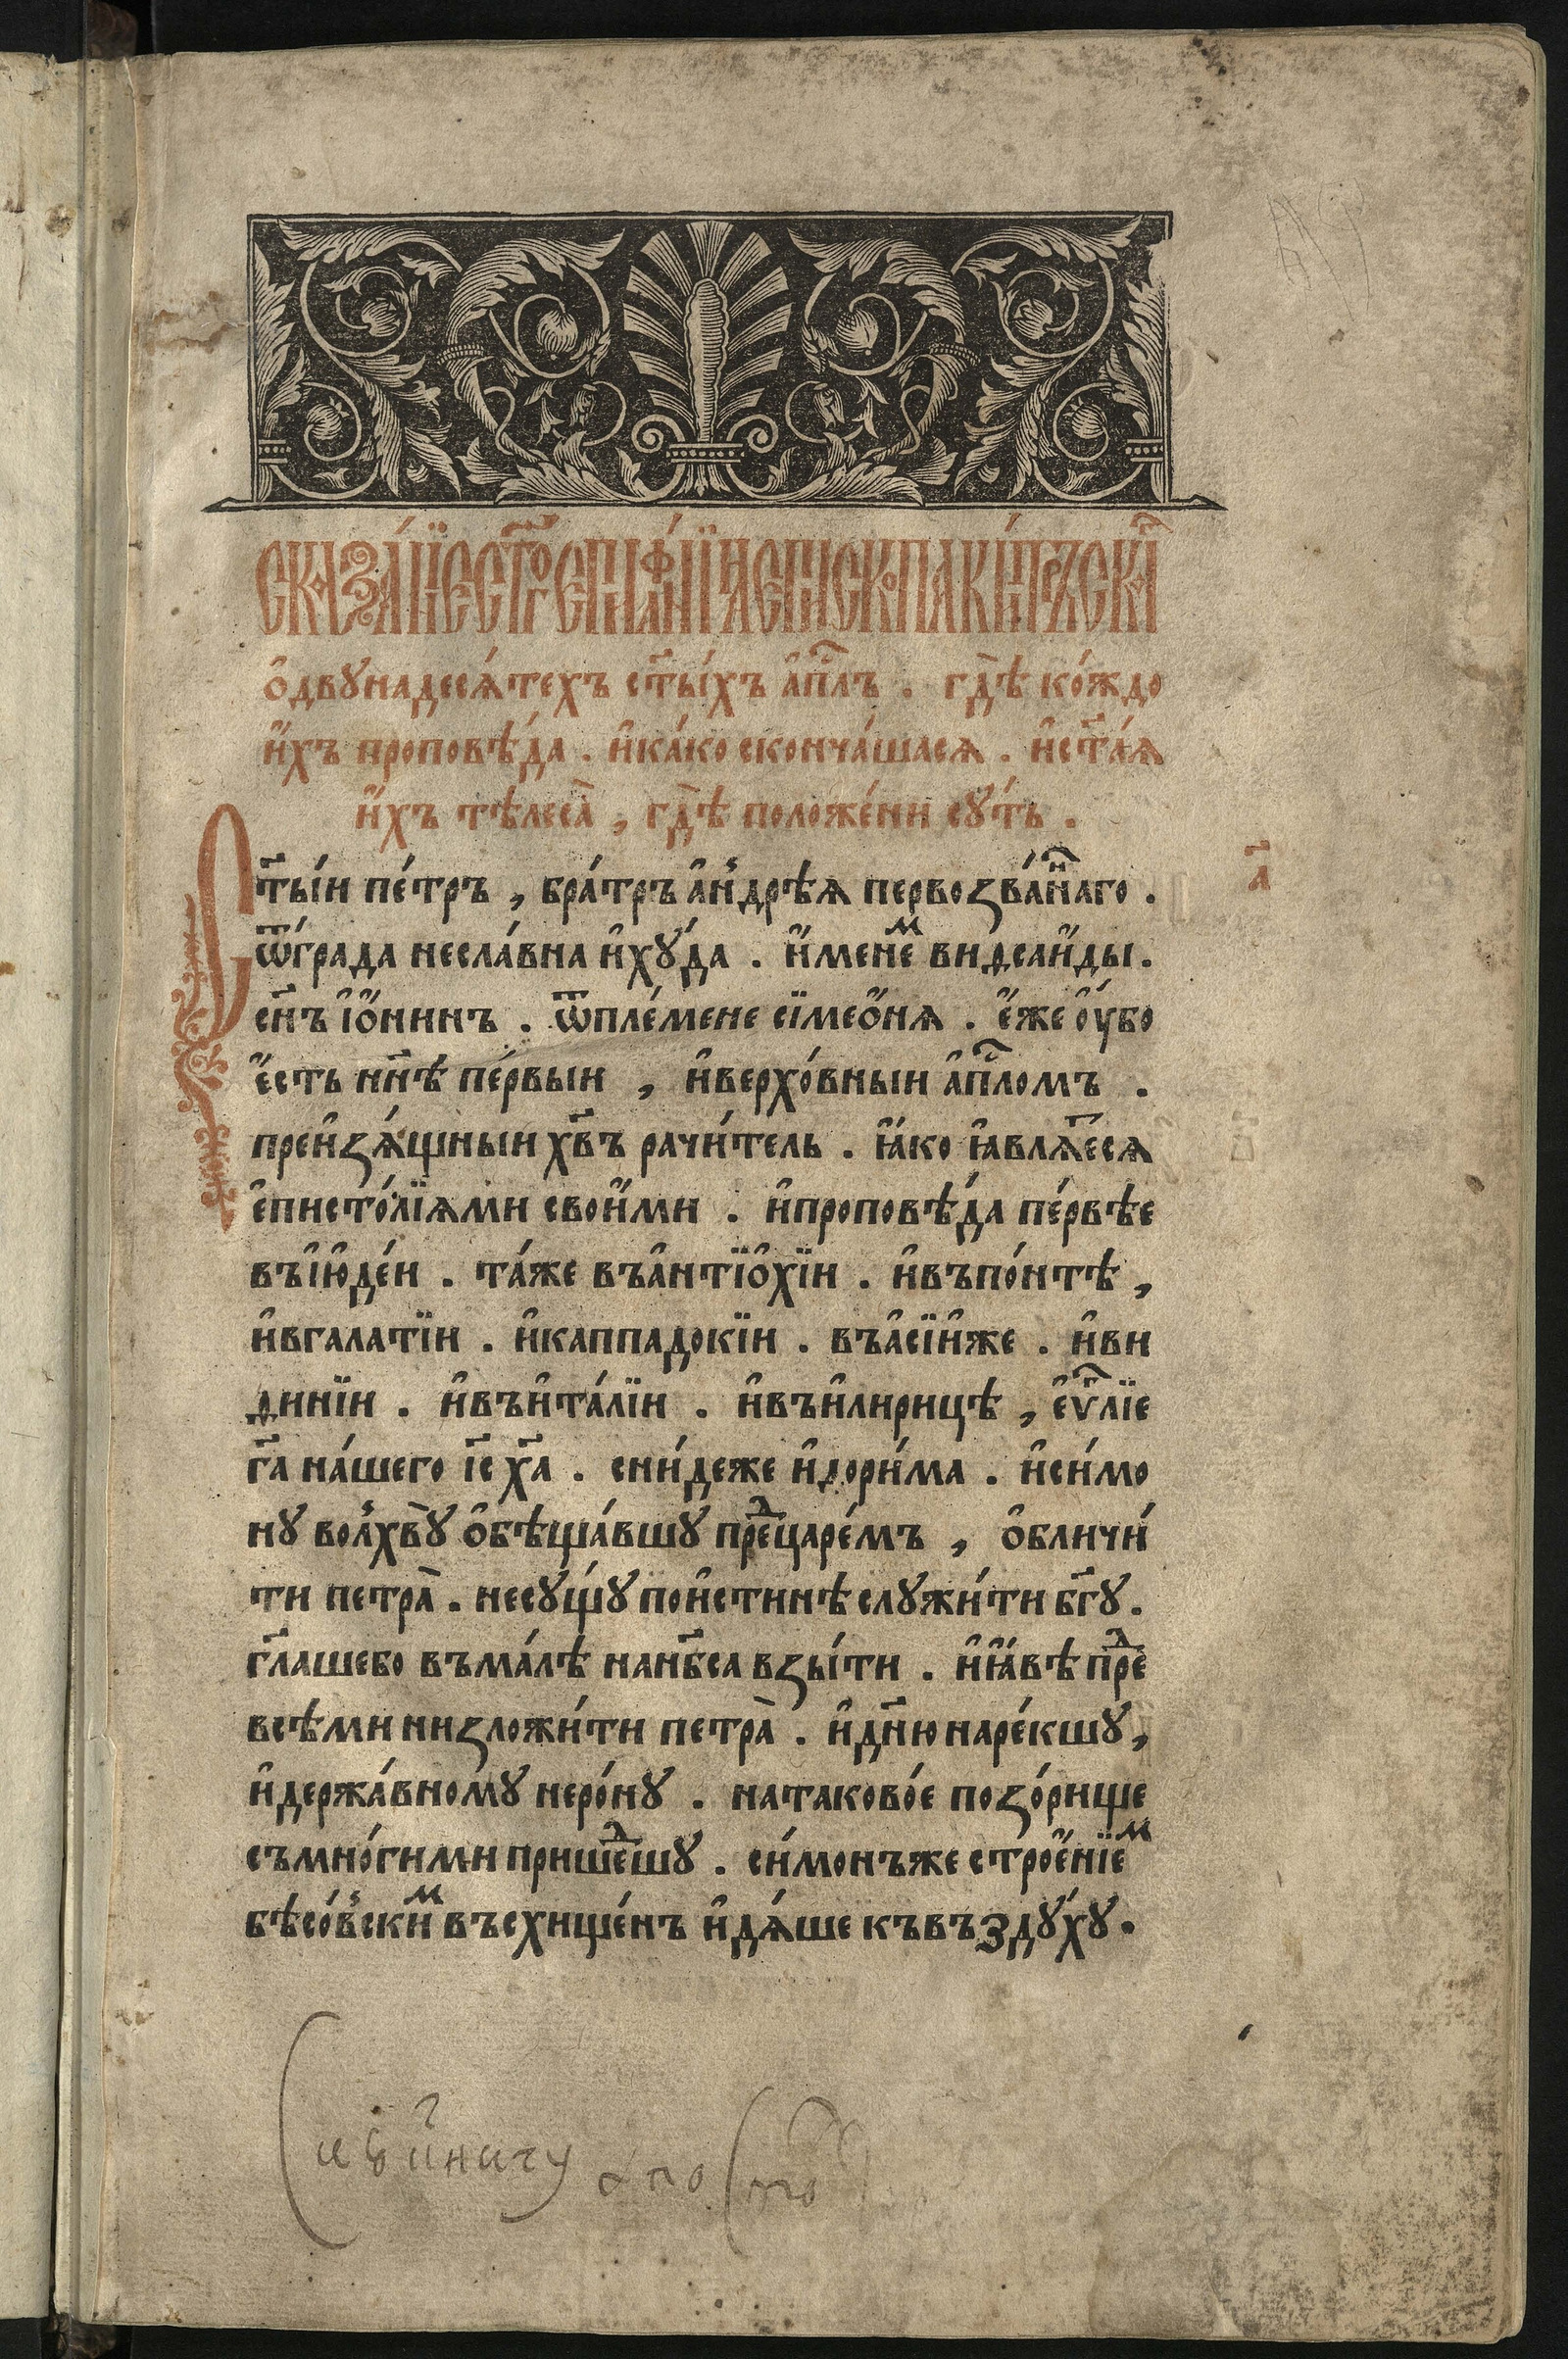 СКАЗА́НЇЕ СТ҃ГО ЕПИФА́НЇА ЕПИСКОПА КИ́ПРЪСКА
ѻ҆двꙋнадесѧ́техъ ст҃ы́хъ а҆пⷭ҇лъ . гдѣ̀ ко́ждо
и҆́хъ проповѣ́да . и҆ка́ко сконча́шасѧ . и҆ст҃а́ѧ
и҆́хъ тѣлеса̀ , гдѣ̀ положе́ни сꙋ́ть .
Ст҃ы́и пе́тръ , бра́тръ а҆ндрѣ́ѧ первоꙁва́нⷩ҇аго .
а҃
ѿгра́да несла́вна и҆хꙋ́да . и҆́менеⷨ видсаи҆́ды .
сн҃ъ і҆ѻ҆́нинъ . ѿпле́мене сїмеѡ҆́нѧ . є҆́же ᲂу҆́бо
є҆́сть нн҃ѣ пе́рвыи , и҆верхо́вныи а҆пⷭ҇ломъ .
преи҆ꙁѧ́щныи хв҃ъ рачи́тель . ꙗ҆́ко ꙗ҆влѧ́етсѧ
є҆писто́лїѧми свои҆́ми . и҆проповѣ́да пе́рвѣе
въі҆ю҆де́и . та́же въа҆нтїѻ҆хїи . и҆въпо́нтѣ ,
и҆вгалатїи . и҆каппадокїи . въа҆сїи҆же . и҆ви
ѳинїи . и҆въи҆та́лїи . и҆въи҆лирицѣ , є҆ѵⷢ҇лїе
гⷭ҇а на́шего і҆с҃ х҃а . сни́деже и҆дори́ма . и҆си́мо
нꙋ волхвꙋ̀ ѻ҆бѣща́вшꙋ преⷣцаре́мъ , ѻ҆бличи́
ти петра̀ . несꙋ́щꙋ пои҆стинѣ слꙋжи́ти бг҃ꙋ .
гл҃ашебо въма́лѣ нанб҃са вꙁы́ти . и҆ꙗ҆́вѣ преⷣ
всѣ́ми ниꙁложи́ти петра̀ . и҆дн҃ю наре́кшꙋ ,
и҆держа́вномꙋ неро́нꙋ . натаково́е поꙁо́рище
съмно́гими пришеⷣшꙋ . си́монъже строе҆́нїеⷨ
бѣсо́вскиⷨ въсхище́нъ и҆дѧ́ше къвъздꙋ́хꙋ .